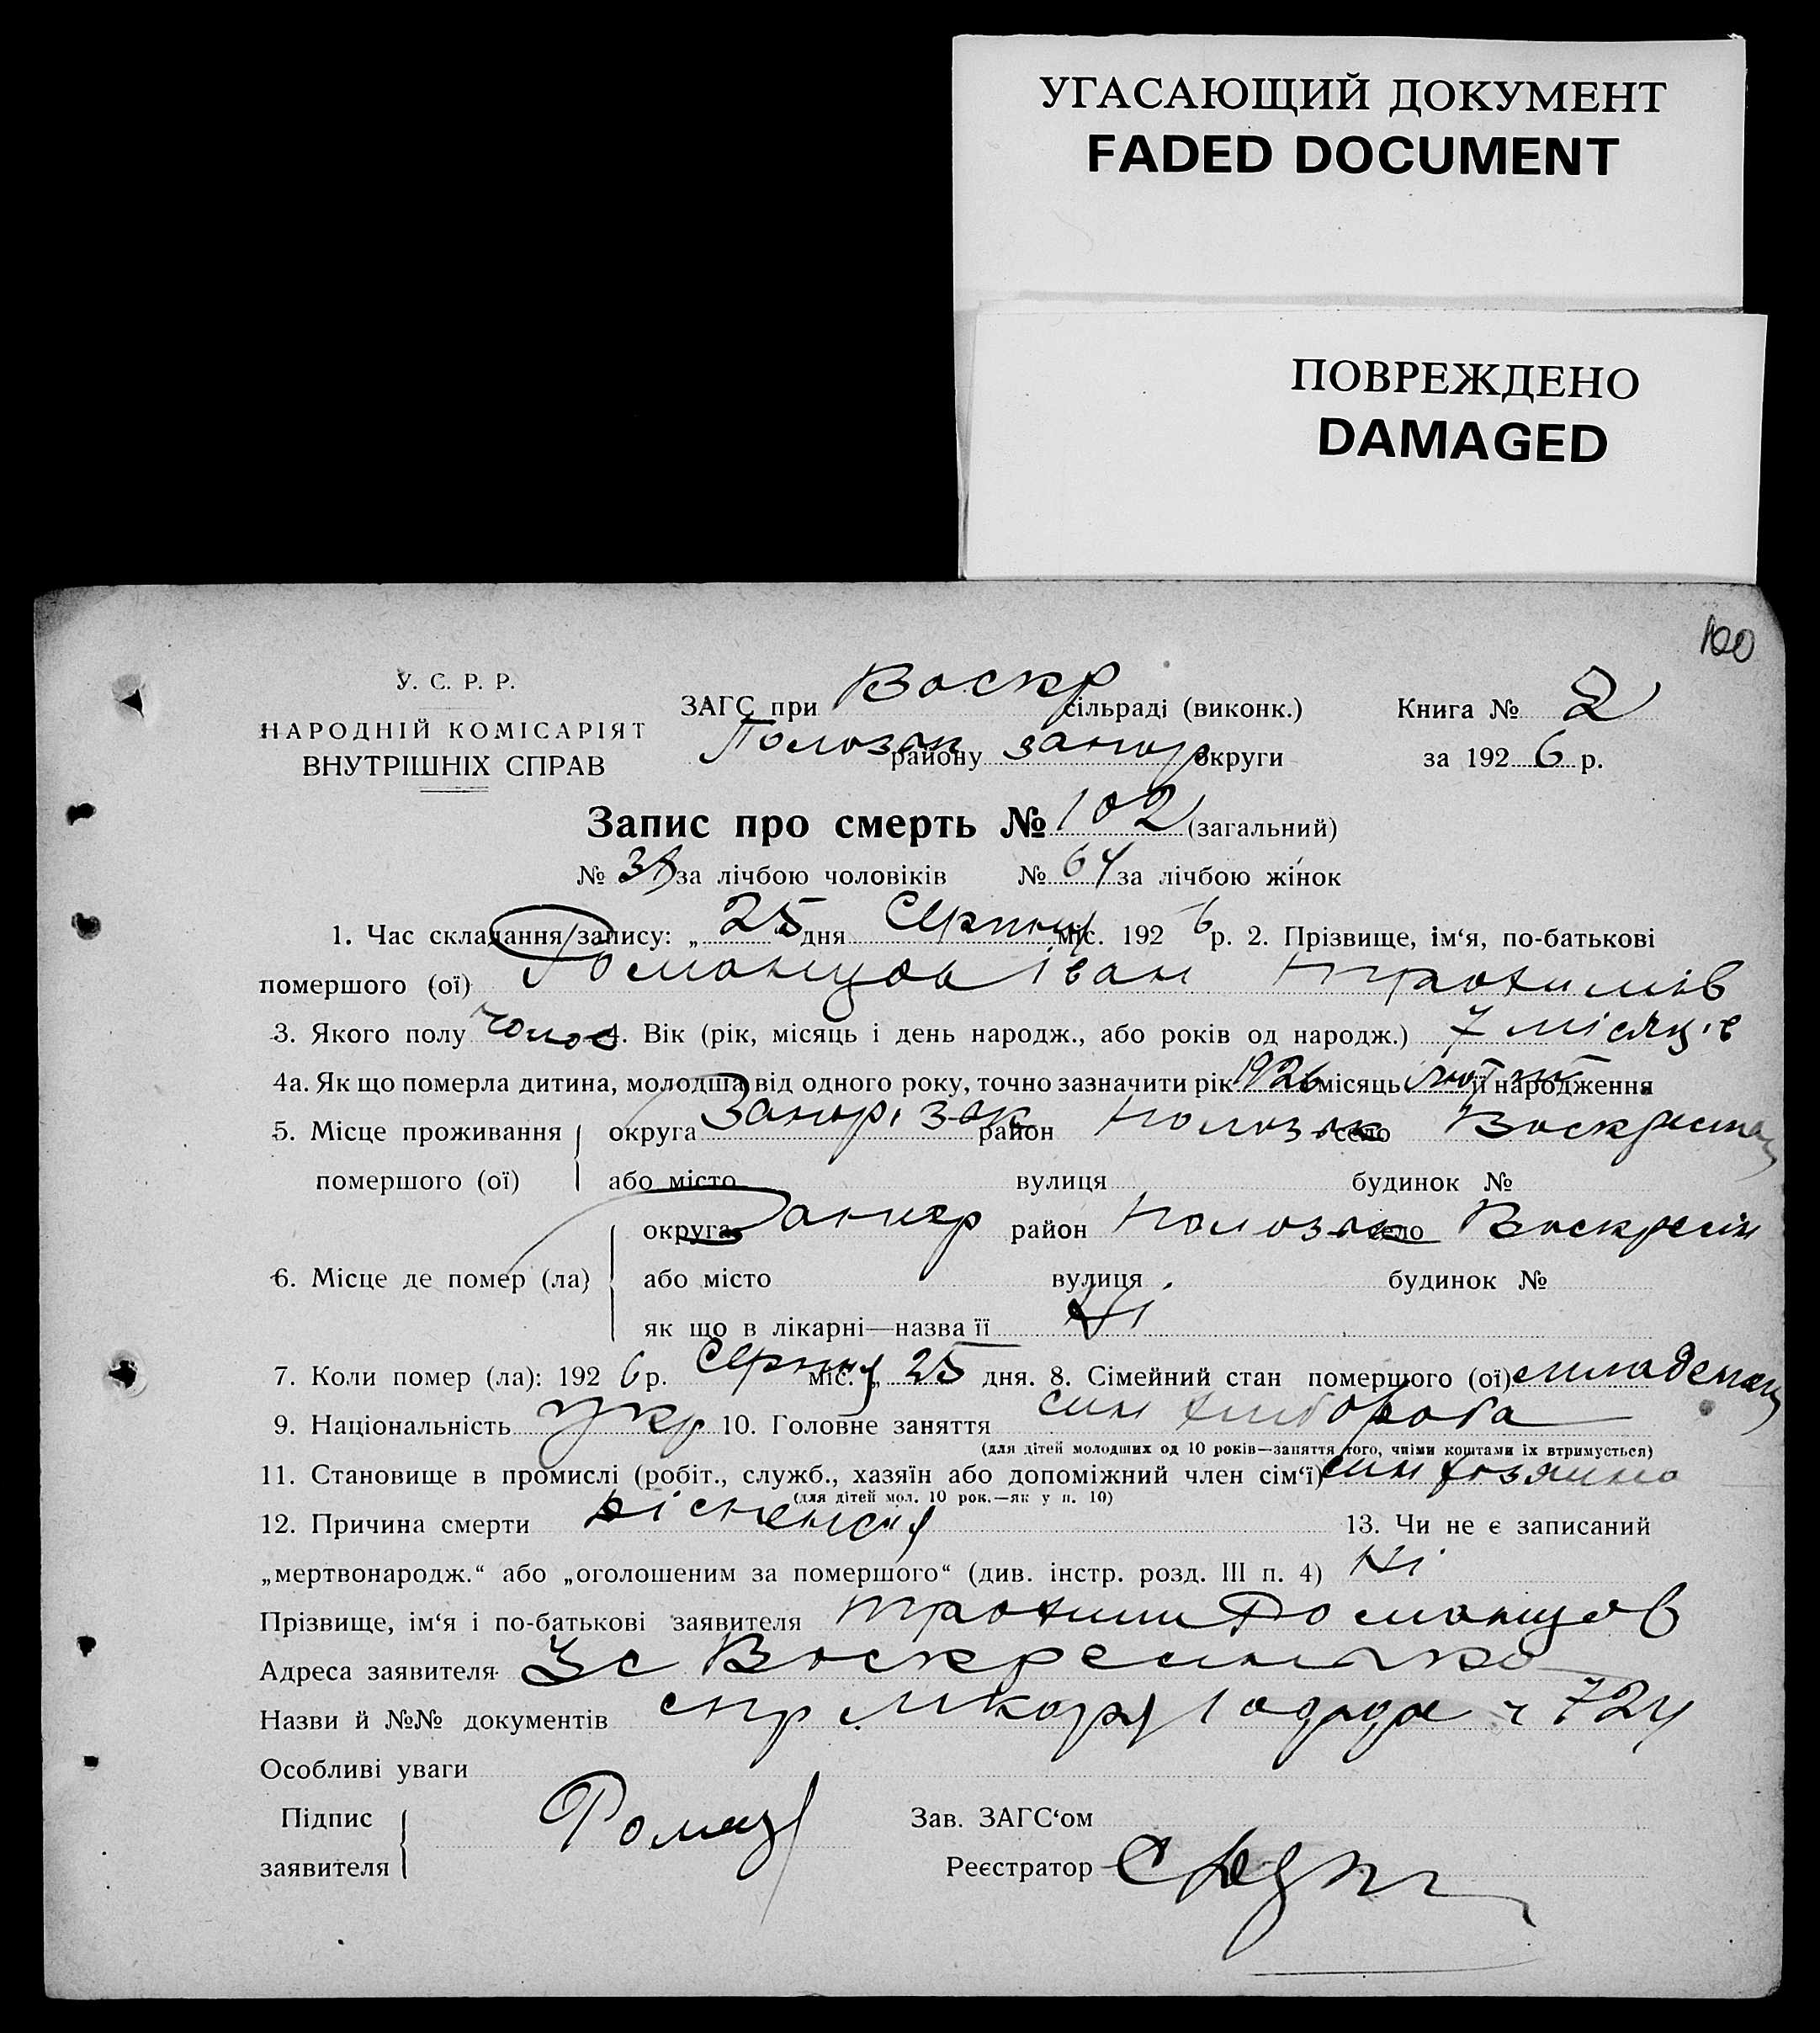 УГАСАЮЩИЙ ДОКУМЕНТ
FADED DOCUMENT
ПОВРЕЖДЕНО
DAMAGED
100
У. С. Р. Р.
НАРОДНІЙ КОМІСАРІЯТ
ВНУТРІШНІХ СПРАВ
ЗАГС при Воскр сільраді (виконк.)
району Запор округи
Книга № 2
за 1926 р.
Запис про смерть № 102 (загальний)
№ 38 за лічбою чоловіків № 64 за лічбою жінок
1. Час складання запису: „ 25 дня Серпня міс. 1926 р. 2. Прізвище, ім‘я, по-батькові
помершого (ої) Романцов Іван
3. Якого полу чолов 4. Вік (рік, місяць і день народж., або років од народж.) 7 місяців
4а. Як що померла дитина, молодша від одного року, точно зазначити рік 1926 місяць її народження
5. Місце проживання округа район село
помершого (ої) або місто вулиця будинок №
округа Запор район село
6. Місце де помер (ла) або місто вулиця будинок №
як що в лікарні—назва її Ні
7. Коли помер (ла): 1926 р. Серпня міс. „ 25 дня. 8. Сімейний стан помершого (ої) младенец
9. Національність укр 10. Головне заняття син хлібороба
(для дітей молодших од 10 років—заняття того, чиїми коштами їх втримується)
11. Становище в промислі (робіт., служб., хазяїн або допоміжний член сім‘ї) син
(для дітей мол. 10 рок.—як у п. 10)
12. Причина смерти 13. Чи не є записаний
„мертвонародж.“ або „оголошеним за помершого“ (див. інстр. розд. III п. 4) Ні
Прізвище, ім‘я і по-батькові заявителя Романцов
Адреса заявителя
Назви й №№ документів 724
Особливі уваги
Підпис
заявителя
Зав. ЗАГС‘ом
Реєстратор